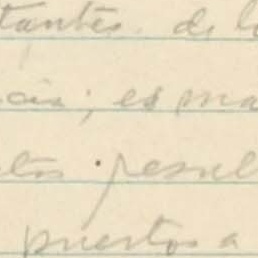 tantes de lo
cia; es ma
tos resul
puestos a